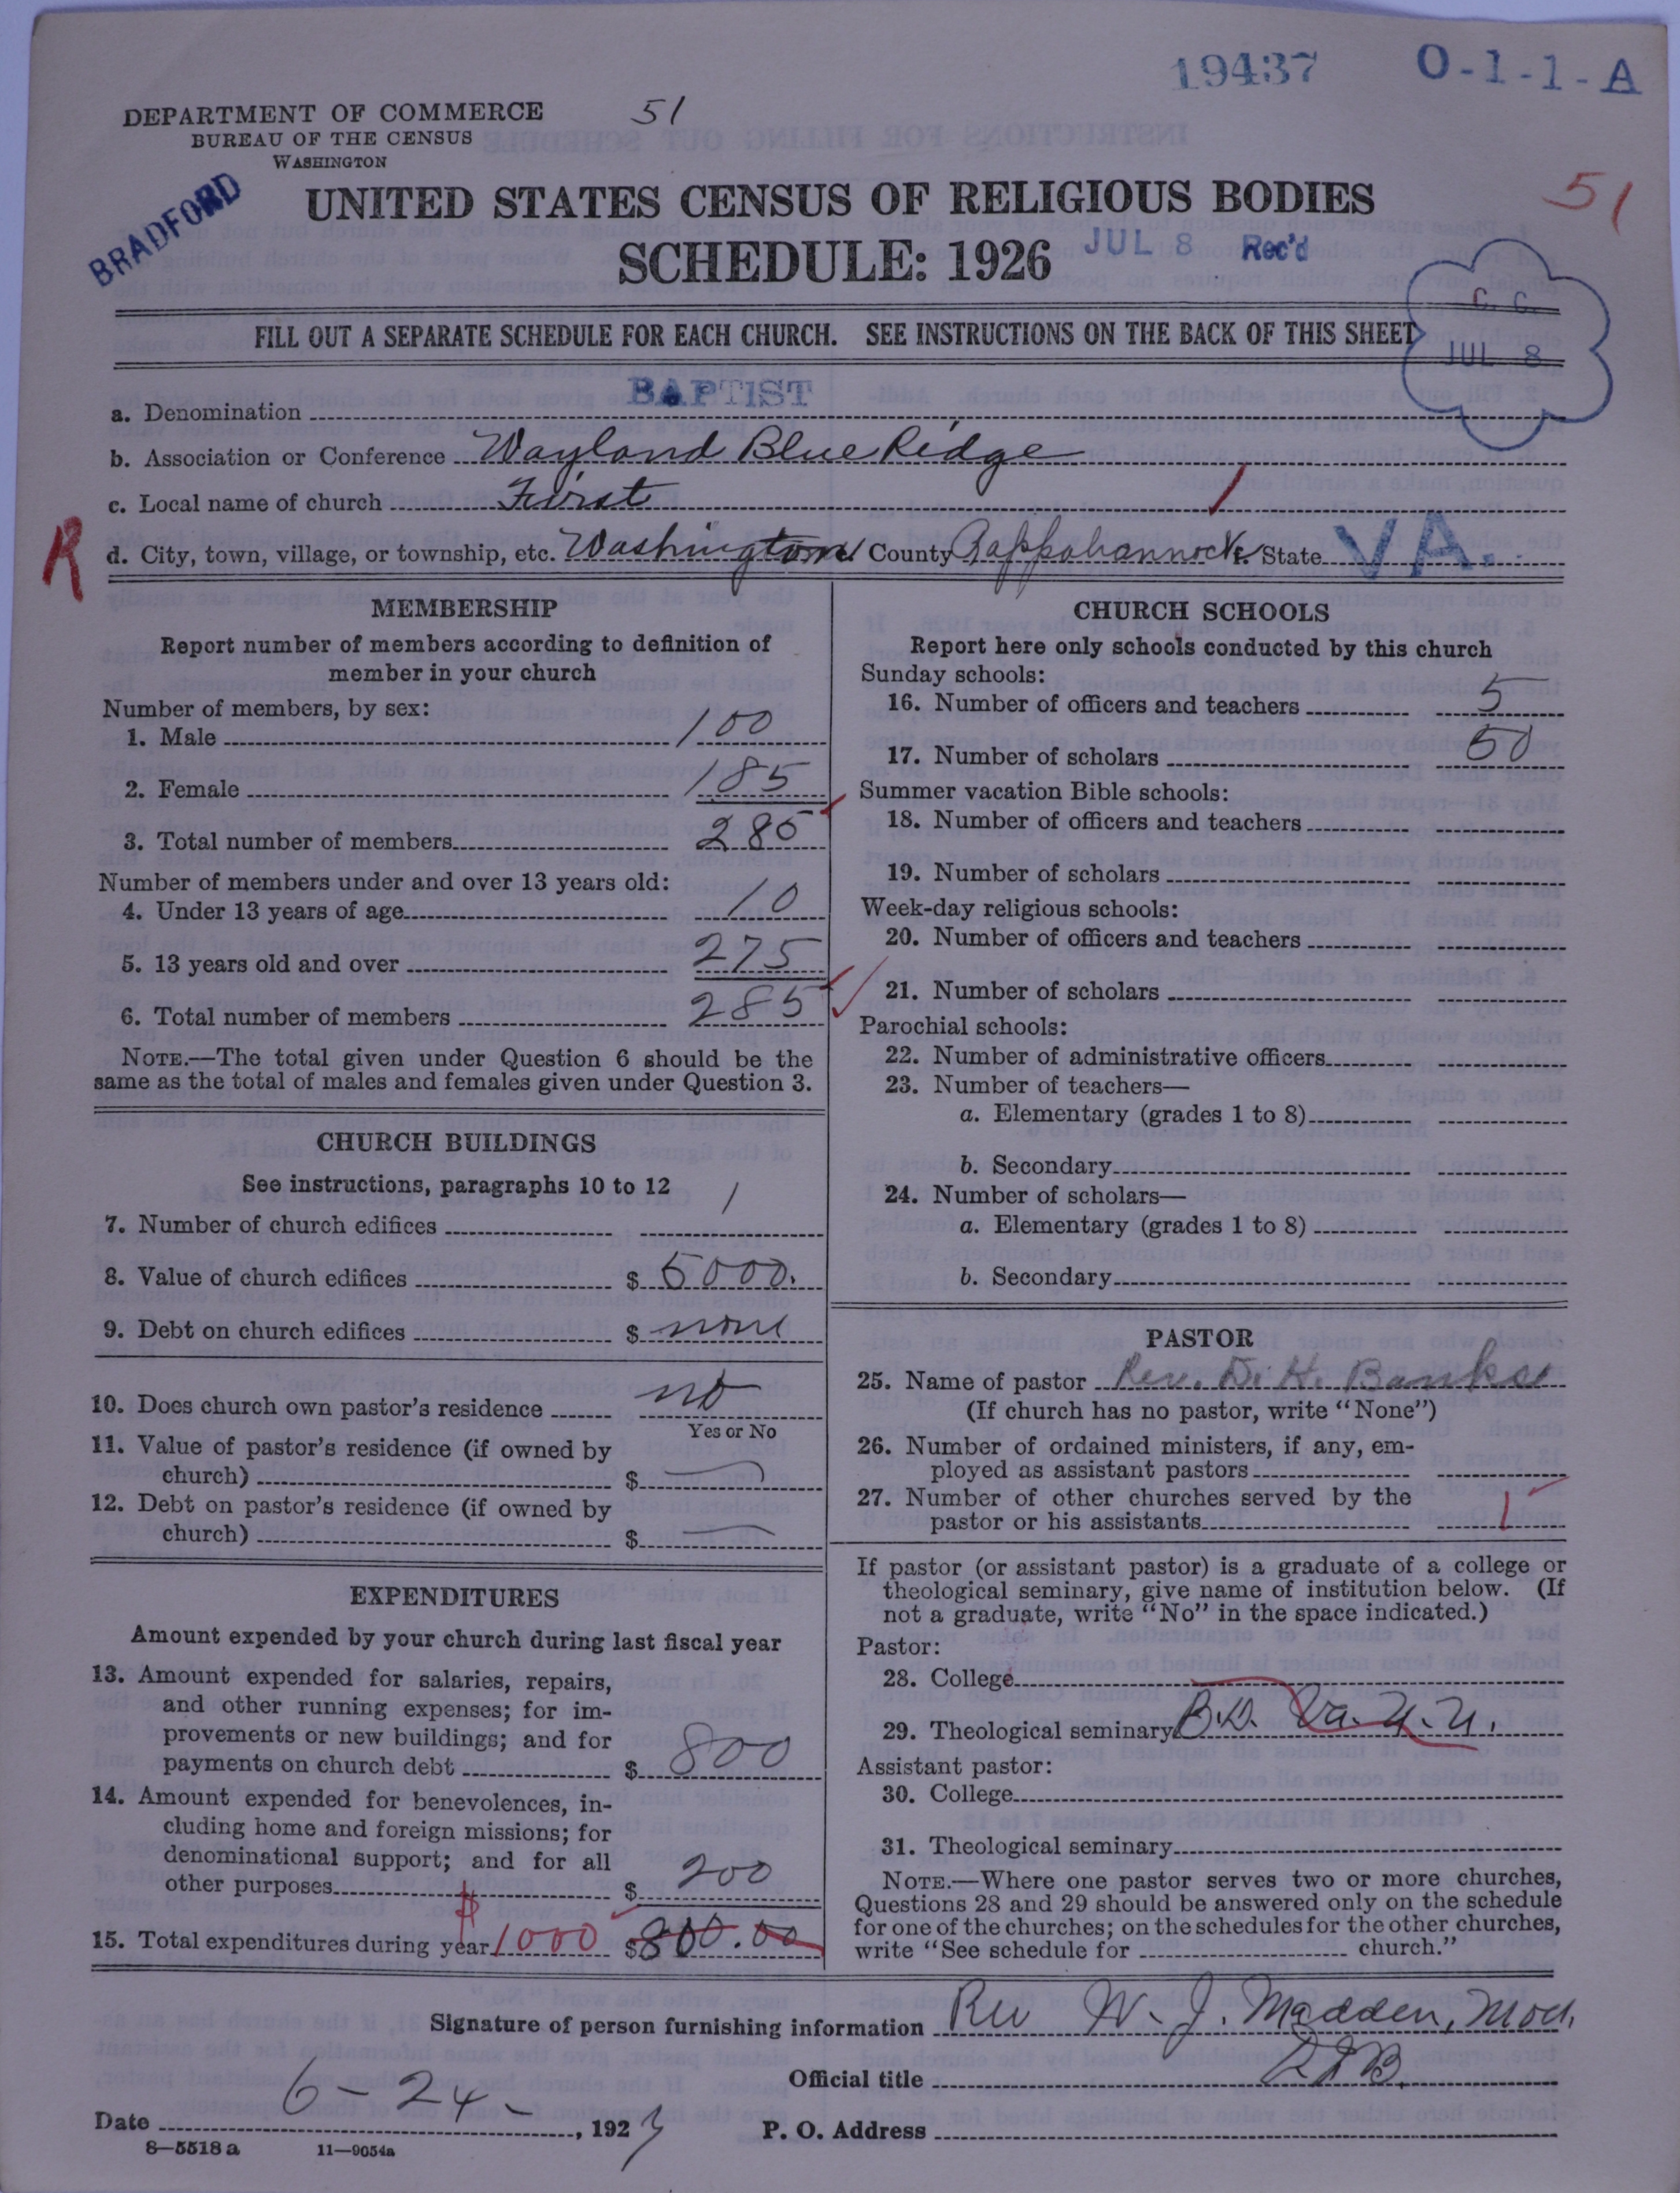 19437 O-1-1-A
DEPARTMENT OF COMMERCE 51
BUREAU OF THE CENSUS
WASHINGTON
BRADFORD
UNITED STATES CENSUS OF RELIGIOUS BODIES 51
SCHEDULE: 1926 JUL 8 Rec'd
C. C.
JUL 8
FILL OUT A SEPARATE SCHEDULE FOR EACH CHURCH. SEE INSTRUCTIONS ON THE BACK OF THIS SHEET
a. Denomination BAPTIST
b. Association or Conference Wayland Blue Ridge
c. Local name of church First
R d. City, town, village, or township, etc. Washington County Rappahannock State VA.
MEMBERSHIP
Report number of members according to definition of
member in your church
Number of members, by sex:
1. Male 100
2. Female 185
3. Total number of members 285
Number of members under and over 13 years old:
4. Under 13 years of age 10
5. 13 years old and over 275
6. Total number of members 285
NOTE.—The total given under Question 6 should be the
same as the total of males and females given under Question 3.
CHURCH BUILDINGS
See instructions, paragraphs 10 to 12
7. Number of church edifices 1
8. Value of church edifices $ 5000.
9. Debt on church edifices $ none
10. Does church own pastor's residence no
Yes or No
11. Value of pastor's residence (if owned by
church) $ —
12. Debt on pastor's residence (if owned by
church) $ —
EXPENDITURES
Amount expended by your church during last fiscal year
13. Amount expended for salaries, repairs,
and other running expenses; for im-
provements or new buildings; and for
payments on church debt $ 800
14. Amount expended for benevolences, in-
cluding home and foreign missions; for
denominational support; and for all
other purposes $ 200
15. Total expenditures during year $1000 $800.00
CHURCH SCHOOLS
Report here only schools conducted by this church
Sunday schools:
16. Number of officers and teachers 5
17. Number of scholars 50
Summer vacation Bible schools:
18. Number of officers and teachers
19. Number of scholars
Week-day religious schools:
20. Number of officers and teachers
21. Number of scholars
Parochial schools:
22. Number of administrative officers
23. Number of teachers—
a. Elementary (grades 1 to 8)
b. Secondary
24. Number of scholars—
a. Elementary (grades 1 to 8)
b. Secondary
PASTOR
25. Name of pastor Rev. D. H. Banks
(If church has no pastor, write "None")
26. Number of ordained ministers, if any, em-
ployed as assistant pastors
27. Number of other churches served by the
pastor or his assistants 1
If pastor (or assistant pastor) is a graduate of a college or
theological seminary, give name of institution below. (If
not a graduate, write "No" in the space indicated.)
Pastor:
28. College
29. Theological seminary B.D. Va. U. U.
Assistant pastor:
30. College
31. Theological seminary
NOTE.—Where one pastor serves two or more churches,
Questions 28 and 29 should be answered only on the schedule
for one of the churches; on the schedules for the other churches,
write "See schedule for church."
Signature of person furnishing information Rev W. J. Madden, Mod.
Official title
Date 6-24- , 1927 P. O. Address
8-5518 a 11-9054a